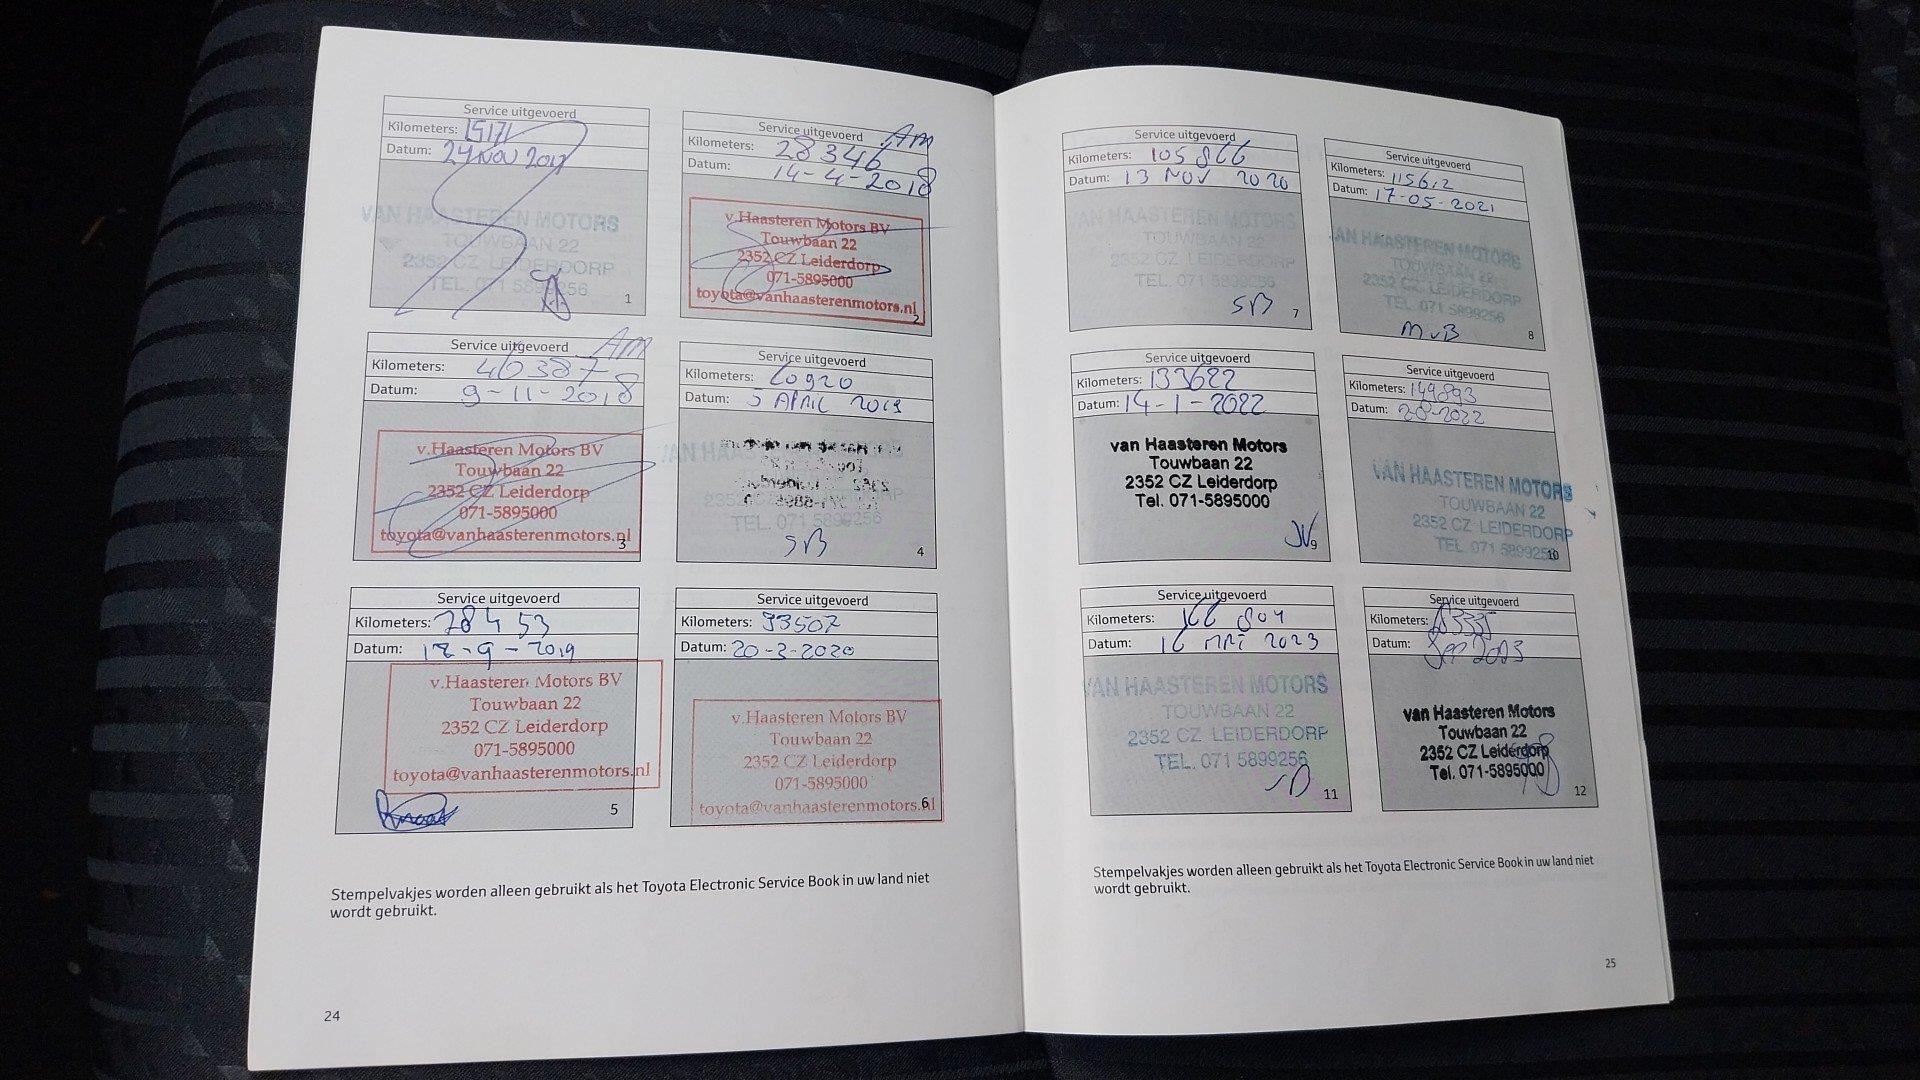 Service uitgevoerd
Kilometers: 15171
Datum: 24 NOV 2017
VAN HAASTEREN MOTORS
TOUWBAAN 22
2352 CZ LEIDERDORP
TEL. 071 5899256
1
Service uitgevoerd AM
Kilometers: 28346
Datum: 14-4-2018
v.Haasteren Motors BV
Touwbaan 22
2352 CZ Leiderdorp
071-5895000
toyota@vanhaasterenmotors.nl
2
Service uitgevoerd AM
Kilometers: 46387
Datum: 9-11-2018
v.Haasteren Motors BV
Touwbaan 22
2352 CZ Leiderdorp
071-5895000
toyota@vanhaasterenmotors.nl
3
Service uitgevoerd
Kilometers: 60920
Datum: 5 APRIL 2019
VAN HAASTEREN MOTORS
2352 CZ LEIDERDORP
TEL. 071 5899256
SB
4
Service uitgevoerd
Kilometers: 78453
Datum: 12-9-2019
v.Haasteren Motors BV
Touwbaan 22
2352 CZ Leiderdorp
071-5895000
toyota@vanhaasterenmotors.nl
5
Service uitgevoerd
Kilometers: 93507
Datum: 20-3-2020
v.Haasteren Motors BV
Touwbaan 22
2352 CZ Leiderdorp
071-5895000
toyota@vanhaasterenmotors.nl
6
Stempelvakjes worden alleen gebruikt als het Toyota Electronic Service Book in uw land niet
wordt gebruikt.
24
Service uitgevoerd
Kilometers: 105 866
Datum: 13 NOV 2020
VAN HAASTEREN MOTORS
TOUWBAAN 22
2352 CZ LEIDERDORP
TEL. 071 5899256
SB
7
Service uitgevoerd
Kilometers: 11561,2
Datum: 17-05-2021
VAN HAASTEREN MOTORS
TOUWBAAN 22
2352 CZ LEIDERDORP
TEL. 071 5899256
MvB
8
Service uitgevoerd
Kilometers: 133622
Datum: 14-1-2022
van Haasteren Motors
Touwbaan 22
2352 CZ Leiderdorp
Tel. 071-5895000
JV
9
Service uitgevoerd
Kilometers: 149893
Datum: 2022
VAN HAASTEREN MOTORS
TOUWBAAN 22
2352 CZ LEIDERDORP
TEL. 071 5899256
10
Service uitgevoerd
Kilometers: 166 804
Datum: 16 MRT 2023
VAN HAASTEREN MOTORS
TOUWBAAN 22
2352 CZ LEIDERDORP
TEL. 071 5899256
SB
11
Service uitgevoerd
Kilometers:
Datum: Sep 2023
van Haasteren Motors
Touwbaan 22
2352 CZ Leiderdorp
Tel. 071-5895000
12
Stempelvakjes worden alleen gebruikt als het Toyota Electronic Service Book in uw land niet
wordt gebruikt.
25